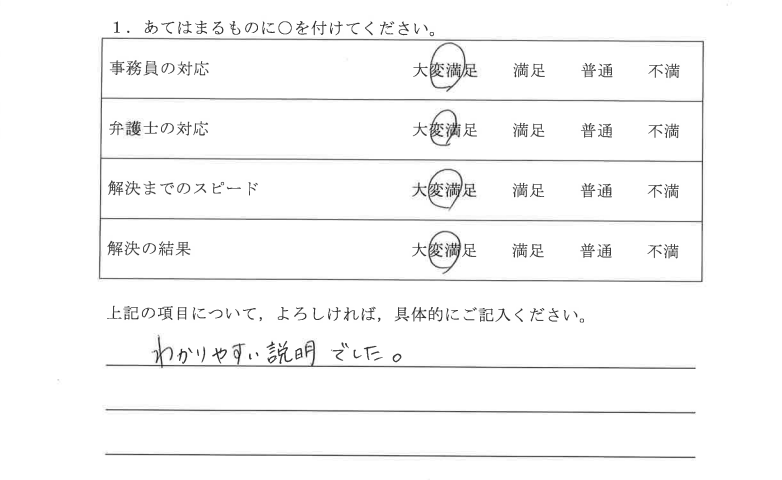 1．あてはまるものに○を付けてください。
事務員の対応 大変満足 満足 普通 不満
弁護士の対応 大変満足 満足 普通 不満
解決までのスピード 大変満足 満足 普通 不満
解決の結果 大変満足 満足 普通 不満
上記の項目について，よろしければ，具体的にご記入ください。
わかりやすい説明でした。